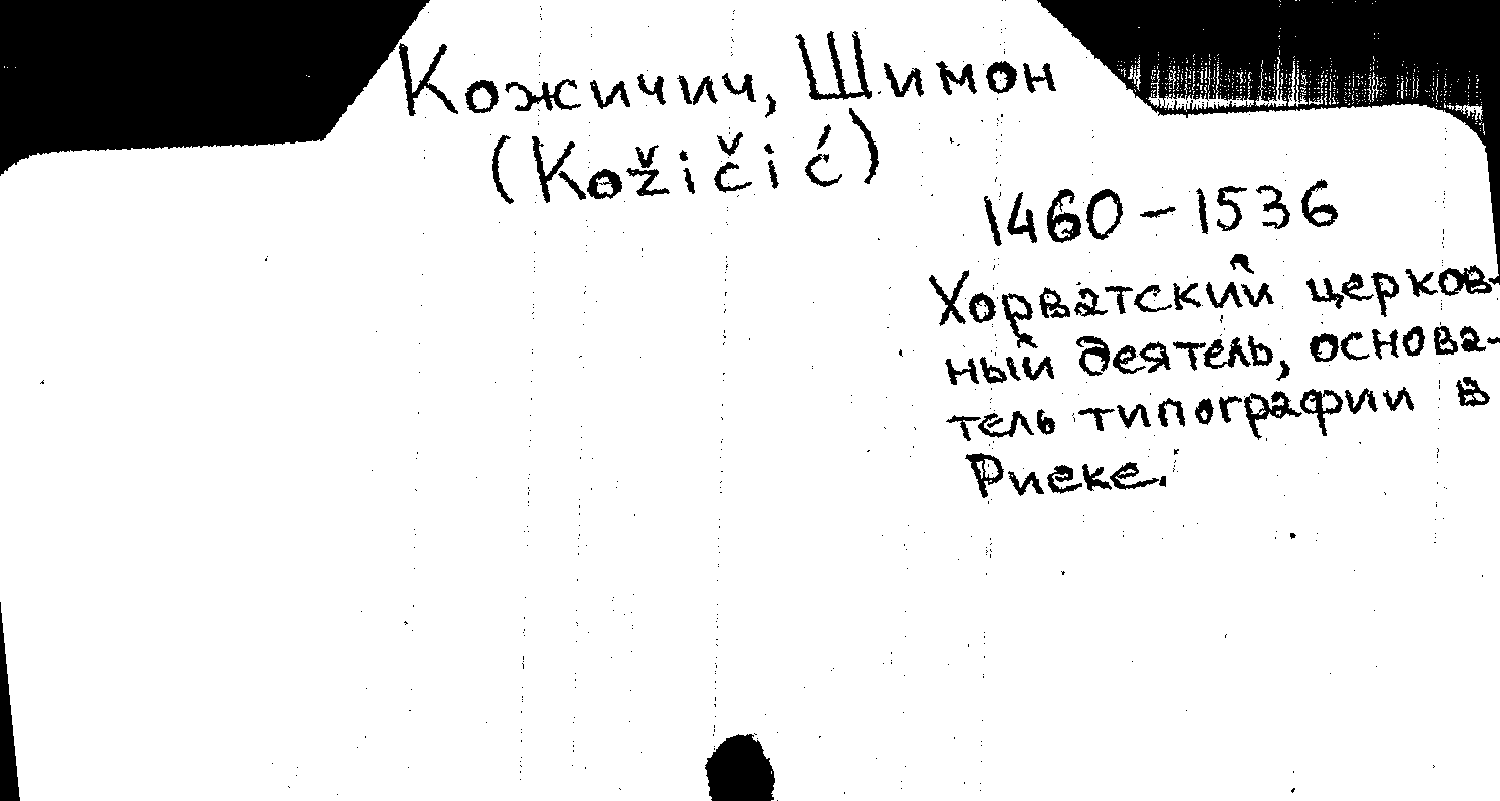 Кожичич, Шимон
(Kožičić)
1460 – 1536
Хорватский церков-
ный деятель, основа-
тель типографии в
Риеке.